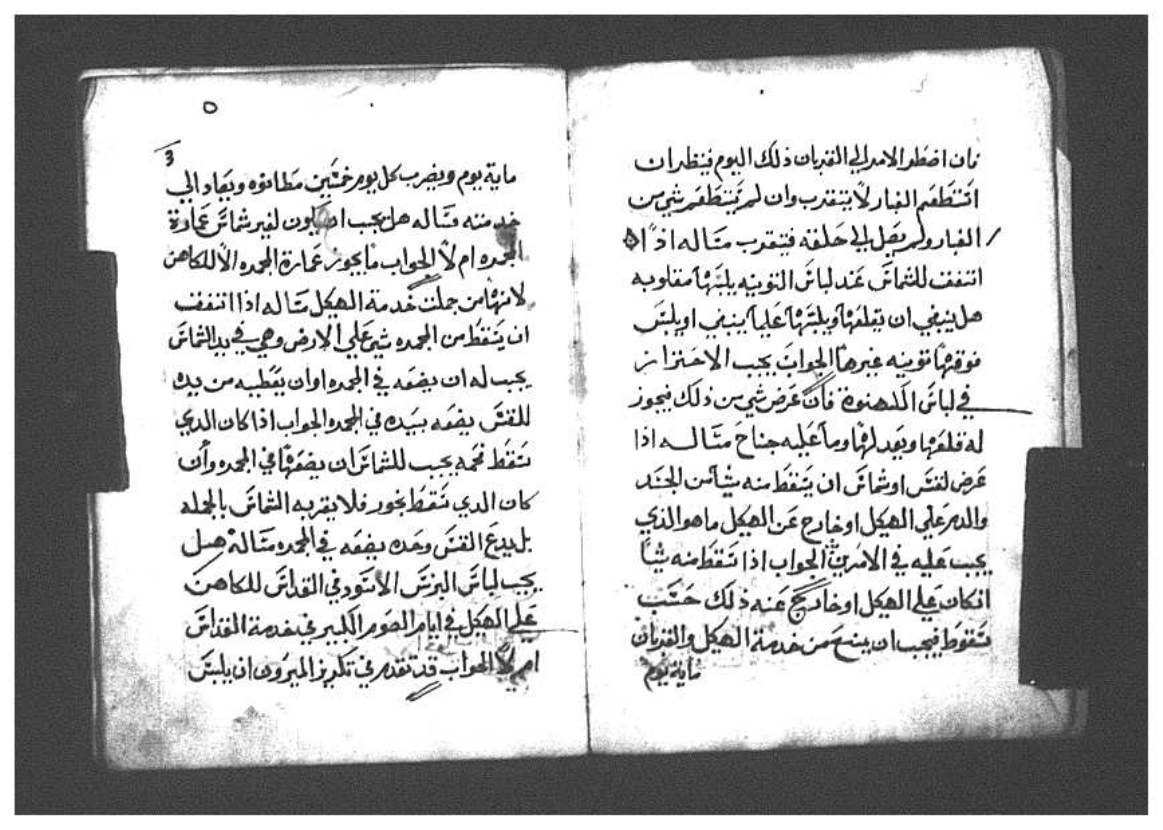 فان اضطر الامر الي القربان ذلك اليوم فينظر ان
اتنطعم الغبار لا يتقرب وان لم يتنطعم شي من
الغبار ولم يصل الي حلقه فيتقرب مساله اذا
اتفق للشماس عند لباس التونيه يلبسها مقلوبه
هل ينبغي ان يقلعها ويلبسها علي ما ينبغي او يلبس
فوقها تونيه غيرها الجواب يجب الاحتراز
في لباس الكهنوة فان عرض شي من ذلك فيجوز
له قلعها ويعدلها وما عليه جناح مساله اذا
عرض لقس او شماس ان يسقط منه شيا من الجسد
والدم علي الهيكل او خارج عن الهيكل ما هو الذي
يجب عليه في الامرين الجواب اذا سقط منه شيا
انكان علي الهيكل او خارج عنه ذلك حسب
سقوط فيجب ان يمنع من خدمة الهيكل والقربان
ماية يوم
٥
3
ماية يوم ويضرب كل يوم خمسين مطانوه ويعاد الي
خدمته مساله هل يجب ان يكون لغير شماس عمارة
المجمره ام لا الجواب ما يجوز عمارة المجمره الا للكاهن
لانها من جملت خدمة الهيكل مساله اذا اتفق
ان يسقط من المجمره شي علي الارض وهي في يد الشماس
يجب له ان يضعه في المجمره او ان يعطيه من يده
للقس يضعه بيده في المجمره الجواب اذا كان الدي
سقط فحمه يجب للشماس ان يضعها في المجمره وان
كان الدي سقط بخور فلا يقربه الشماس بالجمله
بل يدع القس وحده يضعه في المجمره مساله هل
يجب لباس البرنس الاسود في القداس للكاهن
علي الهيكل في ايام الصوم الكبير في خدمة القداس
ام لا الجواب قد تقدم في تكريز الميرون ان يلبس